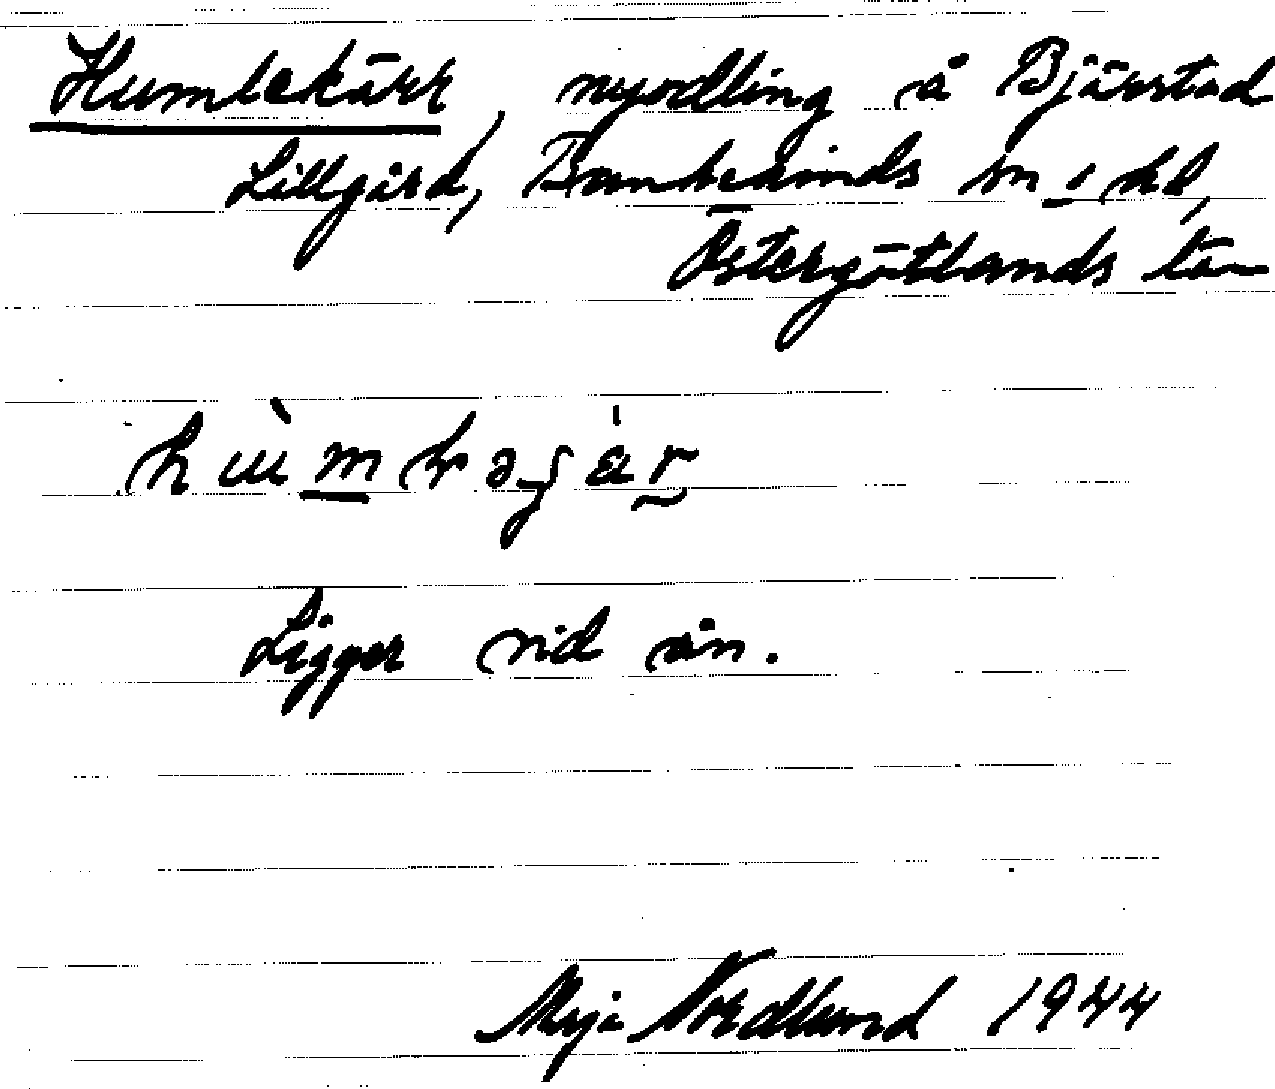 Humlekärr, nyodling å Bjärstad
Lillgård, Bankekinds sn o hd,
Östergötlands län
Ligger vid ån.
Nordlund 1944